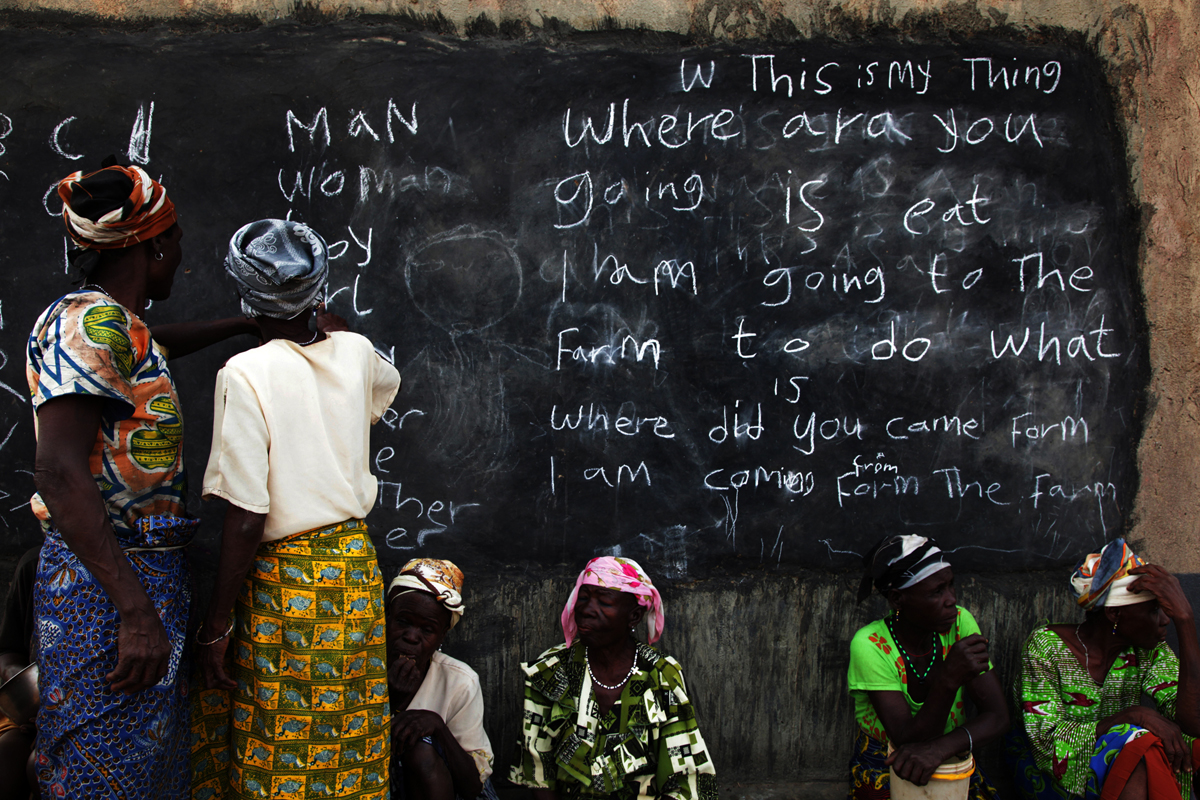 c d
MAN
WOMAN
oy
rL
er
e
Ther
er
W This is My Thing
Where ara you
going is eat
I am going to The
Farm to do what
is
where did you came Form
from
I am coming Form The Farm